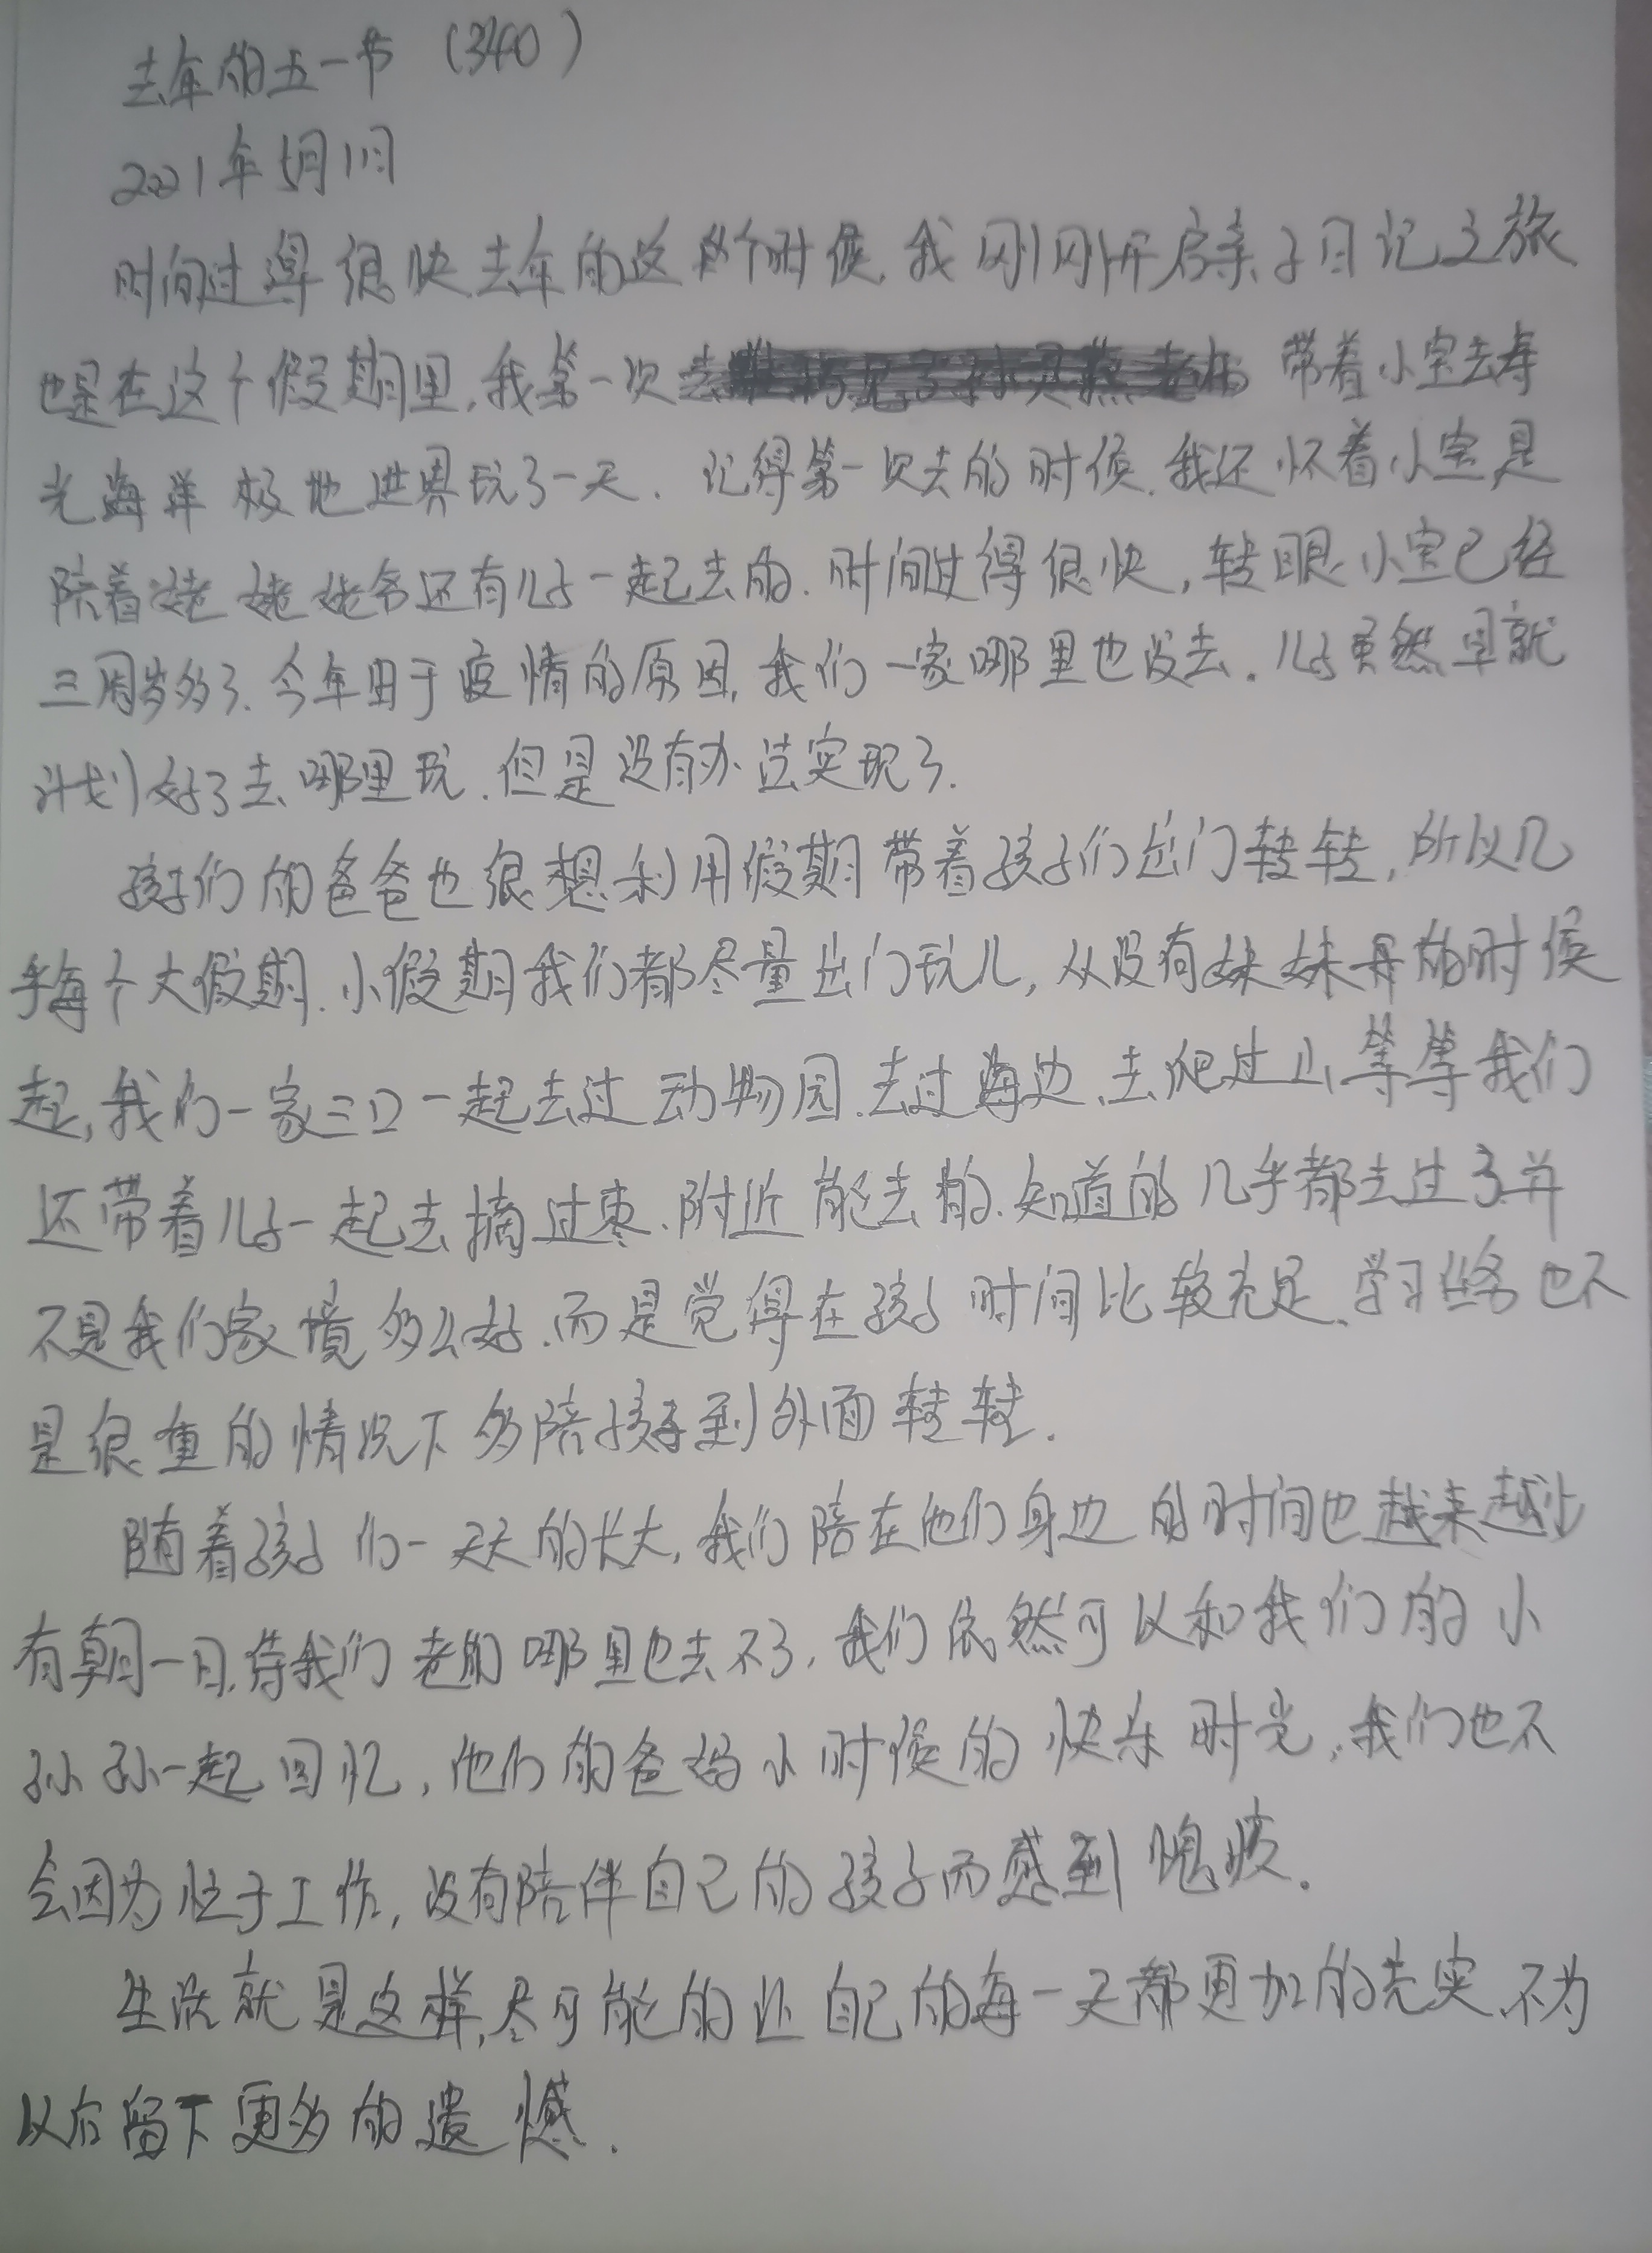 去年的五一节 (340)
2021年5月1日
时间过得很快去年的这个时候,我刚刚开启亲子日记之旅
也是在这个假期里,我第一次去 带着小宝去寿
光海洋极地世界玩了一天. 记得第一次去的时候.我还怀着小宝是
陪着姥姥姥爷还有儿子一起去的.时间过得很快,转眼小宝已经
三周岁多了.今年由于疫情的原因,我们一家哪里也没去.儿子虽然早就
计划好了去哪里玩.但是没有办法实现了.
孩子们的爸爸也很想利用假期带着孩子们出门转转,所以几
乎每个大假期.小假期我们都尽量出门玩儿,从没有妹妹的时候
起,我们一家三口一起去过动物园.去过海边、去爬过山、等等我们
还带着儿子一起去摘过枣.附近能去的.知道的几乎都去过了.并
不是我们家境多么好.而是觉得在孩子时间比较充足.学习任务也不
是很重的情况下多陪孩子到外面转转.
随着孩子们一天天的长大,我们陪在他们身边的时间也越来越少
有朝一日.待我们老的哪里也去不了,我们依然可以和我们的小
孙孙一起回忆,他们的爸妈小时候的快乐时光,我们也不
会因为忙于工作,没有陪伴自己的孩子而感到愧疚.
生活就是这样,尽可能的让自己的每一天都更加的充实.不为
以后留下更多的遗憾.